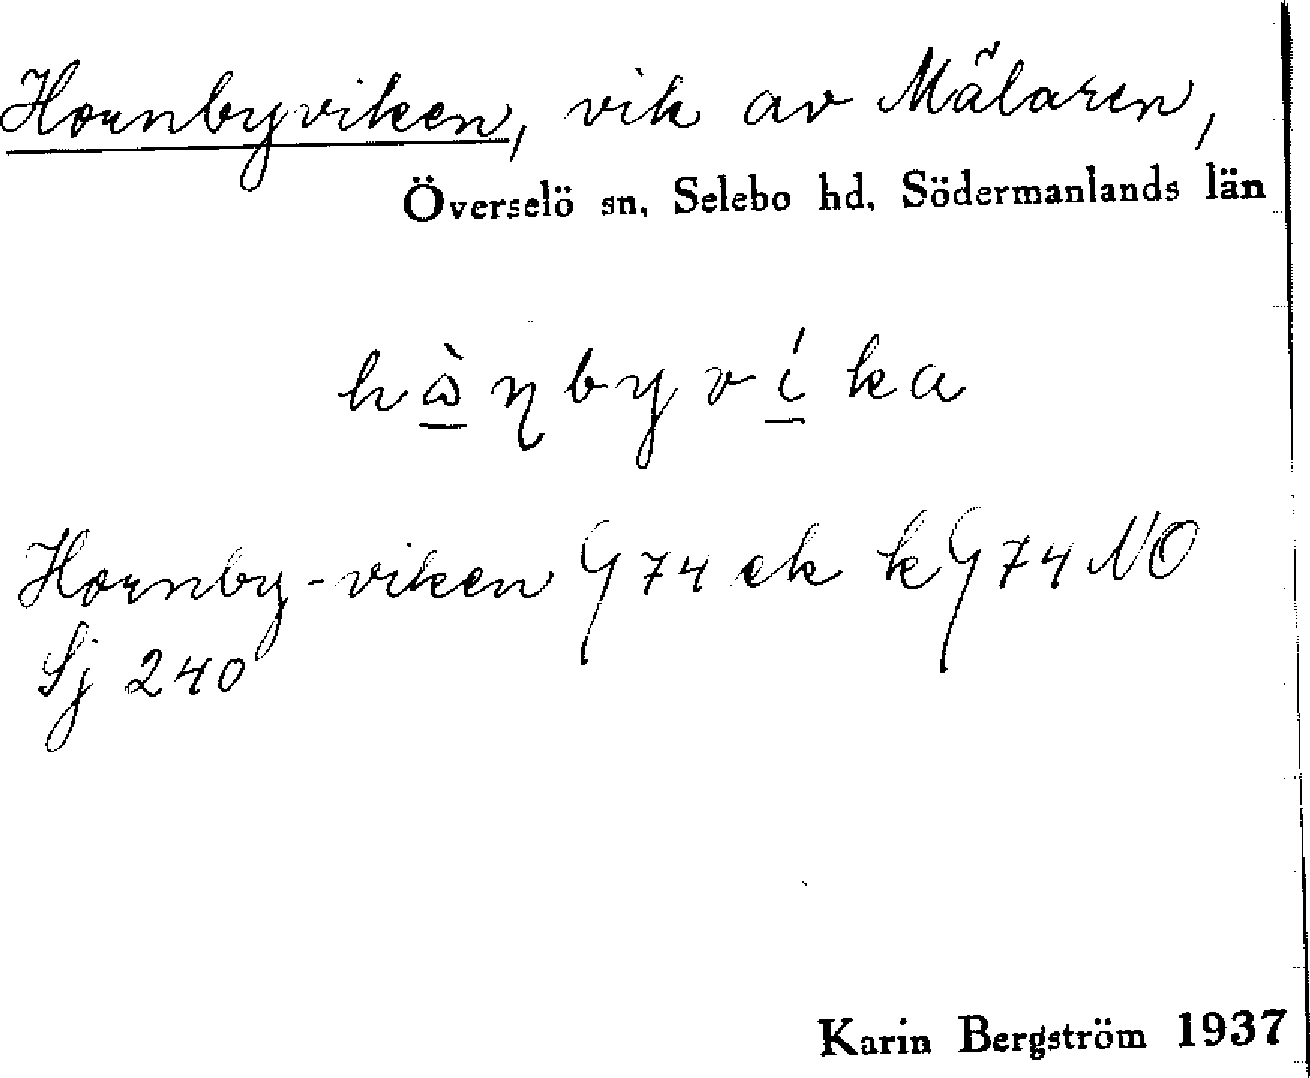 Hornbyviken, vik av Mälaren,
Överselö sn, Selebo hd, Södermanlands län
hὼɳbyvíka
Hornby-viken G 74 ek k G 74 NO
Sj 240
Karin Bergström 1937